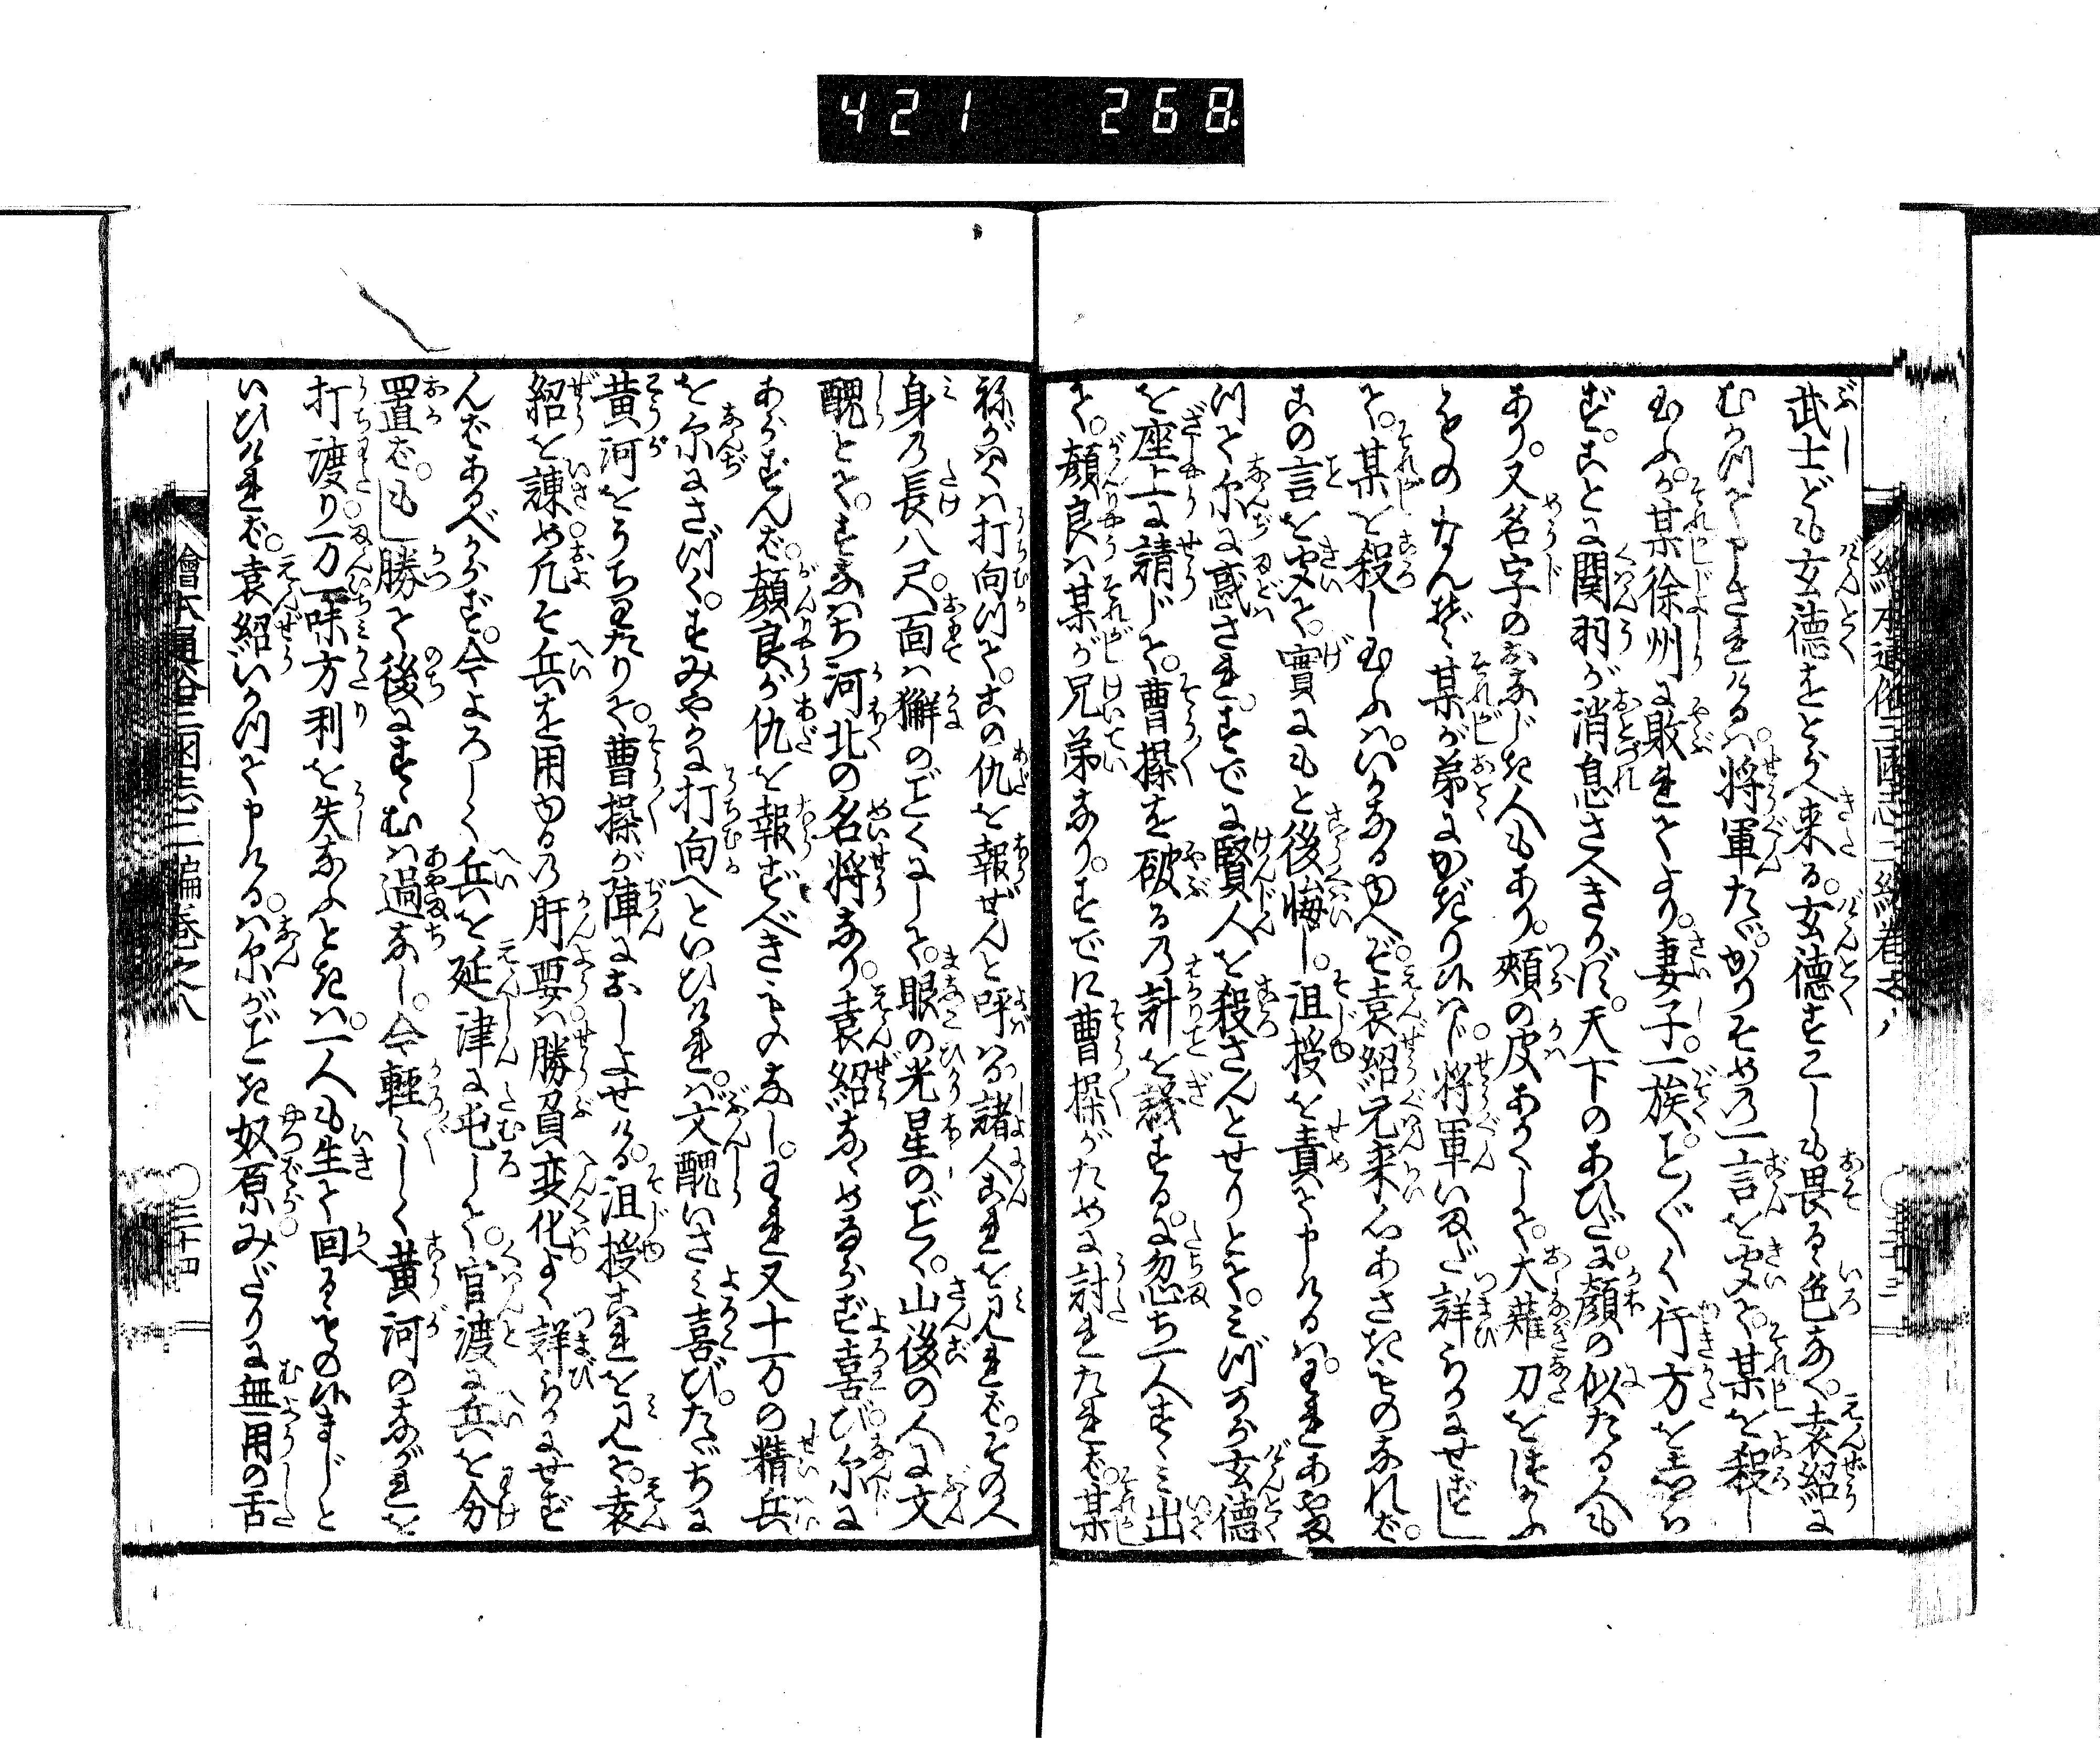 421 268
武士ども玄徳をとらへ来る。玄徳すこしも畏るゝ色なく。袁紹に
むかつて申されけるは。将軍たゞかりそめの一言を聞て。某を殺し
玉ふか。某徐州に敗れてより。妻子一族こと〴〵く行方をしら
ず。ことに関羽が消息さへきかず。天下のあひだ。顔の似たる人も
あり。又名字のおなじき人もあり。頬の皮あかくして。大薙刀をつかふ
ものなんぞ某が弟にかぎり候はんや。将軍いまだ詳らかにせずし
て。某を殺し玉ふは。いかなるゆへぞ。袁紹元来心あさきものなれば。
この言を聞て。實にもと後悔し。沮授を責て申けるは。われあやま
つて尓に惑され。すでに賢人を殺さんとせりとて。みづから玄徳
を座上に請じて。曹操を破るの計を議するに。忽ち一人すゝみ出
て。顔良は某が兄弟なり。すでに曹操がために討れたれば。某
ねがはくは打向つて。この仇を報ぜんと呼はる。諸人これを見れば。その人
身の長八尺。面は獬のごとくにして。眼の光星のごとく。山後の人文
醜とて。すなはち河北の名将なり。袁紹なゝめならず喜び。尓に
あらずんば。顔良が仇を報ずべきものなし。われ又十万の精兵
を尓にさづく。すみやかに打向へといひければ。文醜いさみ喜び。たゞちに
黄河をうちわたりて。曹操が陣におしよせける。沮授これを見て。袁
紹を諌め。凡そ兵を用ゆるの肝要は。勝負変化よく詳らかにせず
んばあるべからず。今よろしく兵を延津に屯して。官渡に兵を分
置ば。もし勝て後にすゝむは過なし。今軽〳〵しく黄河のながれを
打渡り。万一味方利を失なふときは。一人も生て回るもの候まじと
いひければ。袁紹いかつて申けるは。尓がごとき奴原。みだりに無用の舌
繪本通俗三國志二編巻之八
三十四